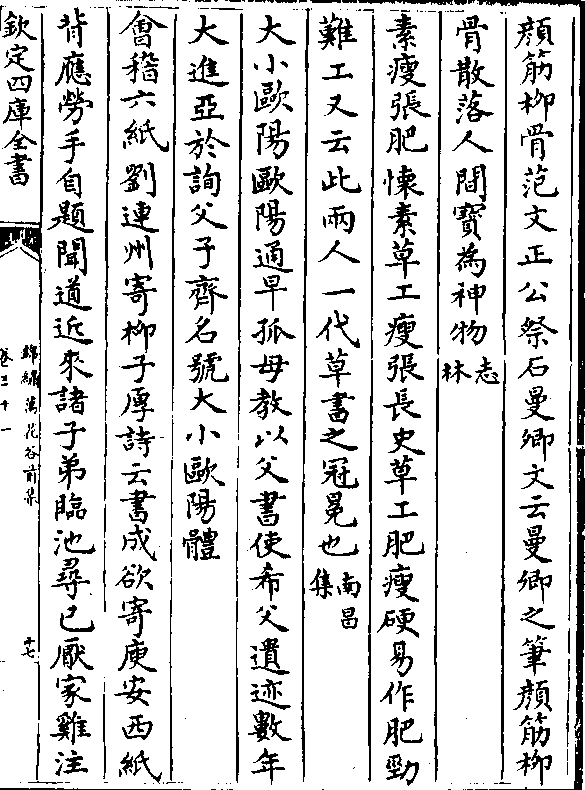 顔筋柳骨范文正公祭石曼卿文云曼卿之筆顔筋柳
骨散落人間寳為神物志林
素瘦張肥懐素草工瘦張長史草工肥瘦硬易作肥勁
難工又云此兩人一代草書之冠冕也南昌集
大小歐陽歐陽通早孤母教以父書使希父遺迹數年
大進亞於詢父子齊名號大小歐陽體
會稽六紙劉連州寄柳子厚詩云書成欲寄庾安西紙
背應勞手自題聞道近來諸子弟臨池尋已厭家雞注
欽定四庫全書
錦繡萬花谷前集
卷三十一
十七